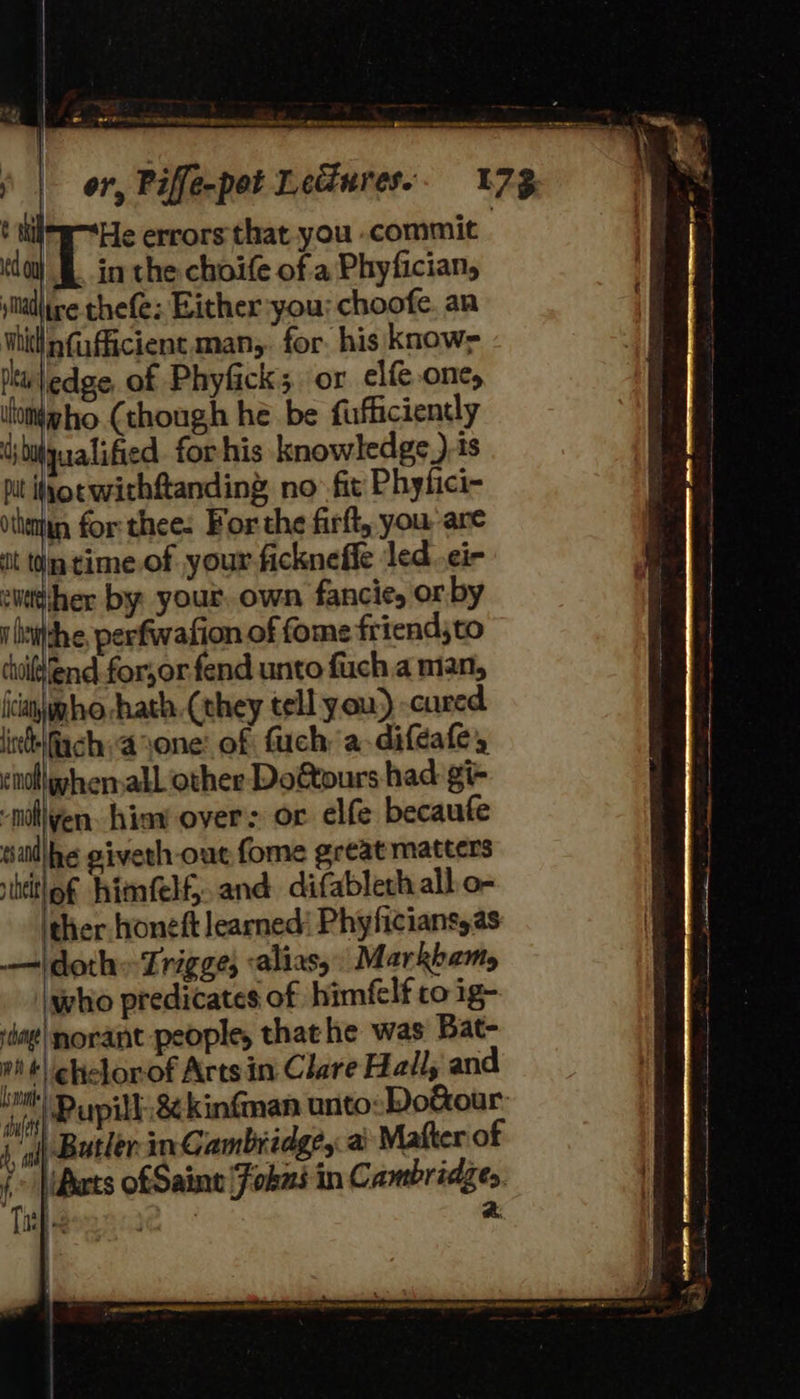 or, Piſſe-pot Lectures. 173
THe errors that you commit
in the choiſe of a Phyſician,
are theſe: Either you chooſe an
inſufficient man, for his know-
ledge of Phyſick; or elſe one,
who (though he be ſufficiently
qualified for his knowledge) is
notwithſtanding no fit Phyſici-
an for thee. For the firſt, you are
in time of your ſickneſſe led ei-
ther by your own fancie, or by
the perſwaſion of ſome friend, to
ſend for, or ſend unto ſuch a man,
who hath (they tell you) cured
ſuch a one of ſuch a diſeaſe,
when all other Doctours had gi-
ven him over: or elſe becauſe
he giveth out ſome great matters
of himſelf, and diſableth all o-
ther honeſt learned Phyſicians, as
doth Trigge, alias, Markham,
who predicates of himſelf to ig-
norant people, that he was Bat-
chelor of Arts in Clare Hall, and
Pupill & kinſman unto Doctour
Butler in Cambridge, a Maſter of
Arts of Saint Johns in Cambridge,
a